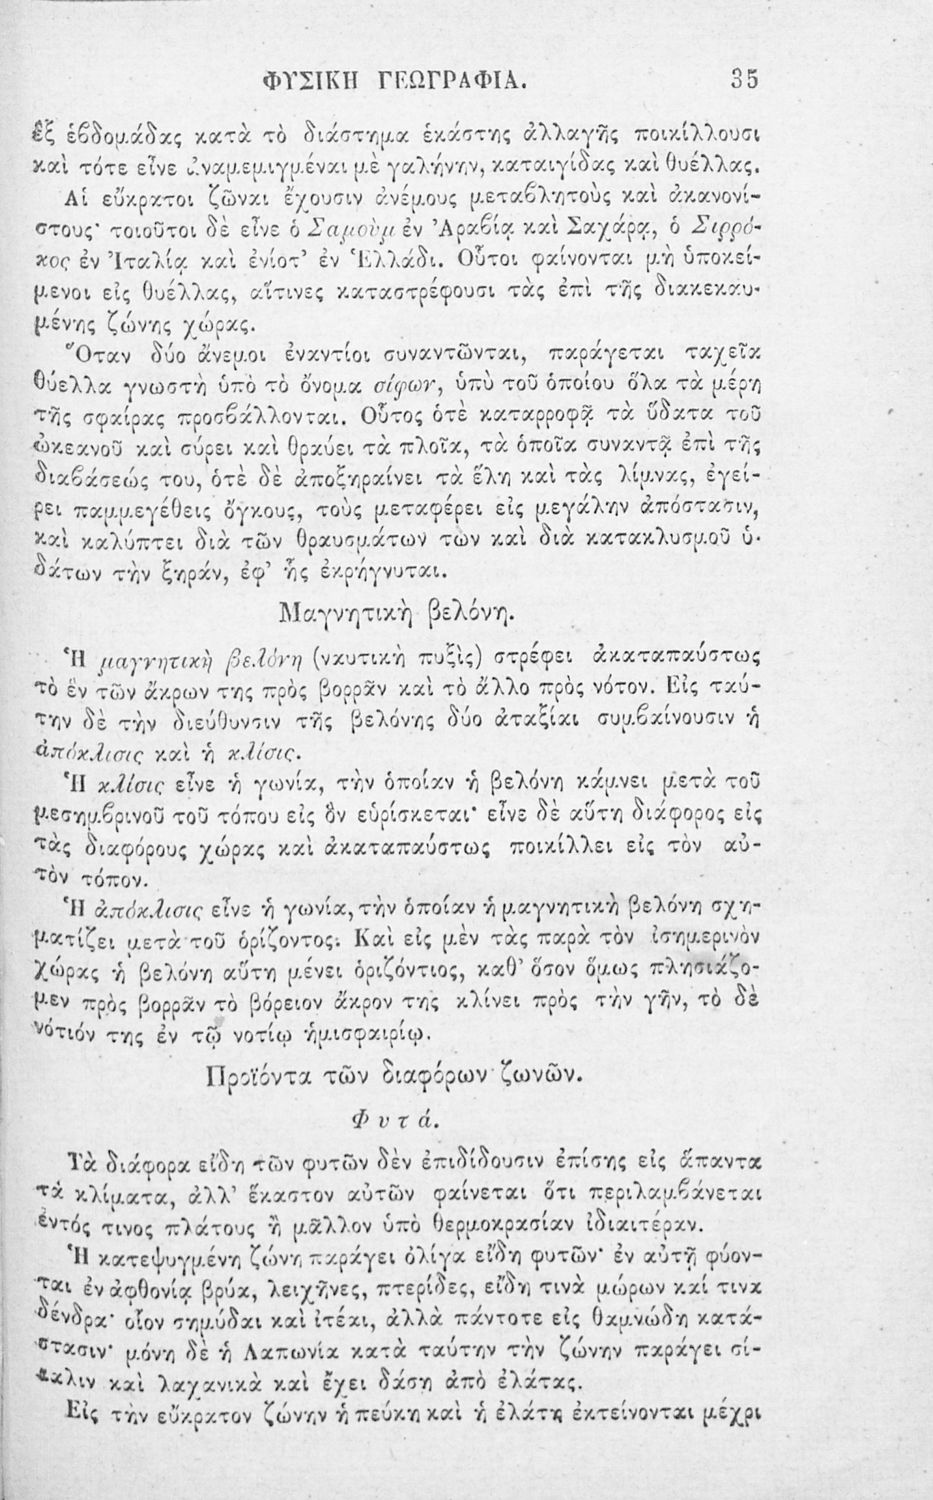 ΦΥΣΙΚΗ ΓΕΩΓΡΑΦΙΑ. 35
ἓξ ἑβδομάδας κατὰ τὸ διάστημα ἑκάστης ἀλλαγῆς ποικίλλουσι
καὶ τότε εἶνε ἀναμεμιγμέναι μὲ γαλήνην, καταιγίδας καὶ θυέλλας.
Αἱ εὔκρατοι ζῶναι ἔχουσιν ἀνέμους μεταβλητοὺς καὶ ἀκανονί-
στους· τοιοῦτοι δὲ εἶνε ὁ Σαμοὺμ ἐν Ἀραβίᾳ καὶ Σαχάρᾳ, ὁ Σιρρό-
κος ἐν Ἰταλίᾳ καὶ ἐνίοτ’ ἐν Ἑλλάδι. Οὗτοι φαίνονται μὴ ὑποκεί-
μενοι εἰς θυέλλας, αἵτινες καταστρέφουσι τὰς ἐπὶ τῆς διακεκαυ-
μένης ζώνης χώρας.
Ὅταν δύο ἄνεμοι ἐναντίοι συναντῶνται, παράγεται ταχεῖα
θύελλα γνωστὴ ὑπὸ τὸ ὄνομα σίφων, ὑπὺ τοῦ ὁποίου ὅλα τὰ μέρη
τῆς σφαίρας προσβάλλονται. Οὗτος ὁτὲ καταρροφᾷ τὰ ὕδατα τοῦ
ὠκεανοῦ καὶ σύρει καὶ θραύει τὰ πλοῖα, τὰ ὁποῖα συναντᾷ ἐπὶ τῆς
διαβάσεώς του, ὁτὲ δὲ ἀποξηραίνει τὰ ἕλη καὶ τὰς λίμνας, ἐγεί-
ρει παμμεγέθεις ὄγκους, τοὺς μεταφέρει εἰς μεγάλην ἀπόστασιν,
καὶ καλύπτει διὰ τῶν θραυσμάτων των καὶ διὰ κατακλυσμοῦ ὑ-
δάτων τὴν ξηράν, ἐφ’ ἧς ἐκρήγνυται.
Μαγνητικὴ βελόνη.
Ἡ μαγνητικὴ βελόνη (ναυτικὴ πυξὶς) στρέφει ἀκαταπαύστως
τὸ ἓν τῶν ἄκρων της πρὸς βορρᾶν καὶ τὸ ἄλλο πρὸς νότον. Εἰς ταύ-
την δὲ τὴν διεύθυνσιν τῆς βελόνης δύο ἀταξίαι συμβαίνουσιν ἡ
ἀπόκλισις καὶ ἡ κλίσις.
Ἡ κλίσις εἶνε ἡ γωνία, τὴν ὁποίαν ἡ βελόνη κάμνει μετὰ τοῦ
μεσημβρινοῦ τοῦ τόπου εἰς ὃν εὑρίσκεται· εἶνε δὲ αὕτη διάφορος εἰς
τὰς διαφόρους χώρας καὶ ἀκαταπαύστως ποικίλλει εἰς τὸν αὐ-
τὸν τόπον.
Ἡ ἀπόκλισις εἶνε ἡ γωνία, τὴν ὁποίαν ἡ μαγνητικὴ βελόνη σχη-
ματίζει μετὰ τοῦ ὁρίζοντος. Καὶ εἰς μὲν τὰς παρὰ τὸν ἰσημερινὸν
χώρας ἡ βελόνη αὕτη μένει ὁριζόντιος, καθ’ ὅσον ὅμως πλησιάζο-
μεν πρὸς βορρᾶν τὸ βόρειον ἄκρον της κλίνει πρὸς τὴν γῆν, τὸ δὲ
νότιόν της ἐν τῷ νοτίῳ ἡμισφαιρίῳ.
Προϊόντα τῶν διαφόρων ζωνῶν.
Φυτά.
Τὰ διάφορα εἴδη τῶν φυτῶν δὲν ἐπιδίδουσιν ἐπίσης εἰς ἅπαντα
τὰ κλίματα, ἀλλ’ ἕκαστον αὐτῶν φαίνεται ὅτι περιλαμβάνεται
ἐντός τινος πλάτους ἢ μᾶλλον ὑπὸ θερμοκρασίαν ἰδιαιτέραν.
Ἡ κατεψυγμένη ζώνη παράγει ὀλίγα εἴδη φυτῶν· ἐν αὐτῇ φύον-
ται ἐν ἀφθονίᾳ βρύα, λειχῆνες, πτερίδες, εἴδη τινὰ μώρων καί τινα
δένδρα· οἷον σημύδαι καὶ ἰτέαι, ἀλλὰ πάντοτε εἰς θαμνώδη κατά-
στασιν· μόνη δὲ ἡ Λαπωνία κατὰ ταύτην τὴν ζώνην παράγει σί-
καλιν καὶ λαχανικὰ καὶ ἔχει δάση ἀπὸ ἐλάτας.
Εἰς τὴν εὔκρατον ζώνην ἡ πεύκη καὶ ἡ ἐλάτη ἐκτείνονται μέχρι